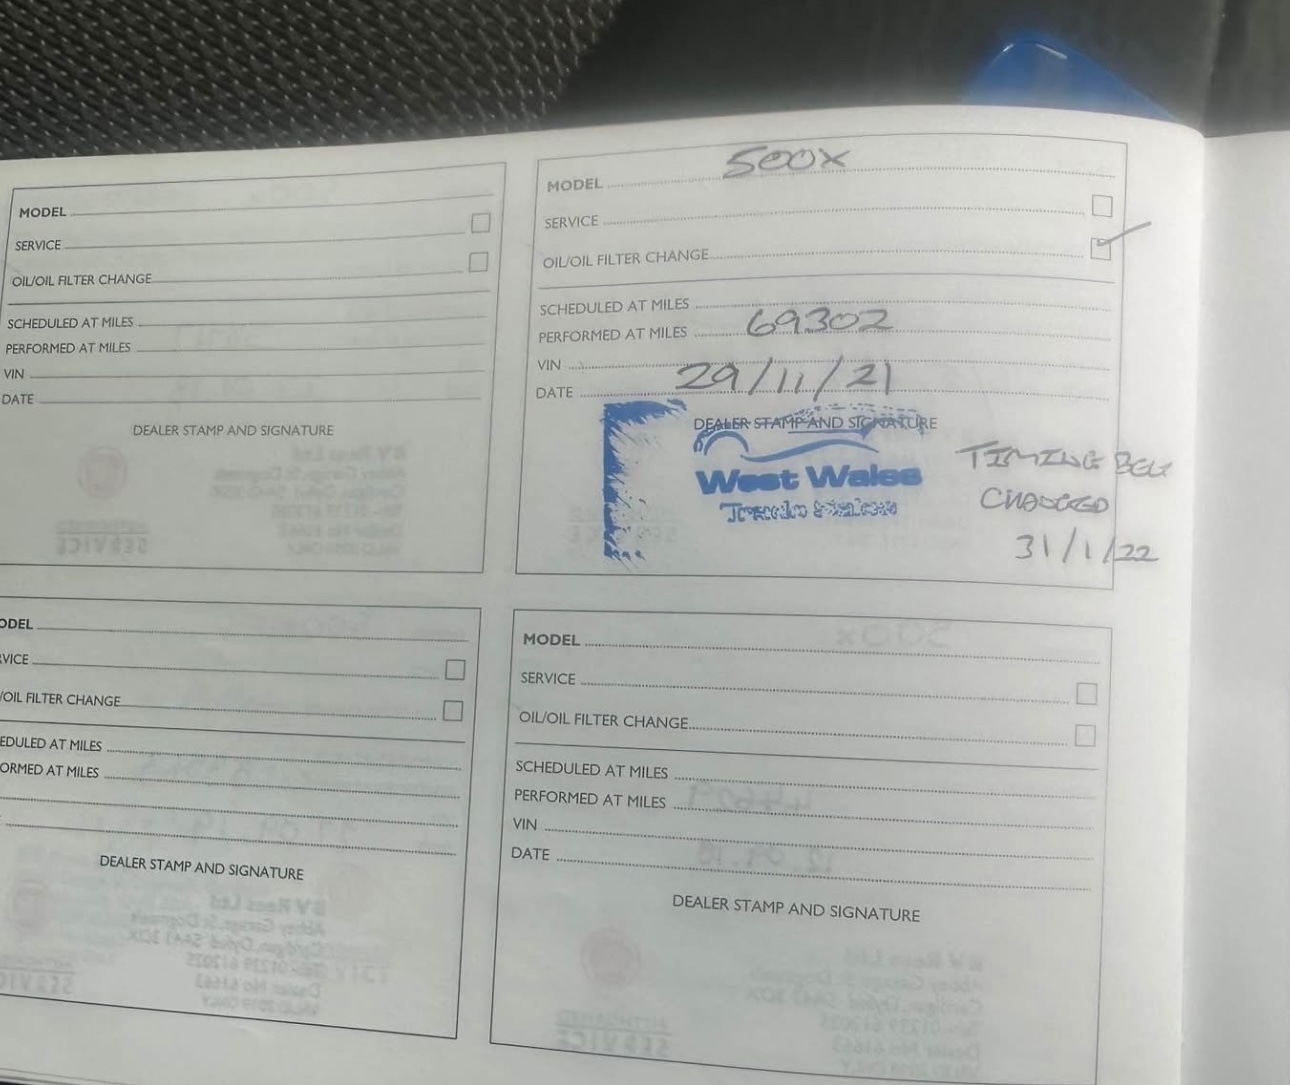 MODEL
SERVICE
OIL/OIL FILTER CHANGE
SCHEDULED AT MILES
PERFORMED AT MILES
VIN
DATE
DEALER STAMP AND SIGNATURE
MODEL 500X
SERVICE
OIL/OIL FILTER CHANGE
SCHEDULED AT MILES
PERFORMED AT MILES 69302
VIN
DATE 29/11/21
DEALER STAMP AND SIGNATURE
West Wales
TIMING BELT
CHANGED
31/1/22
ODEL
RVICE
/OIL FILTER CHANGE
EDULED AT MILES
ORMED AT MILES
DEALER STAMP AND SIGNATURE
MODEL
SERVICE
OIL/OIL FILTER CHANGE
SCHEDULED AT MILES
PERFORMED AT MILES
VIN
DATE
DEALER STAMP AND SIGNATURE